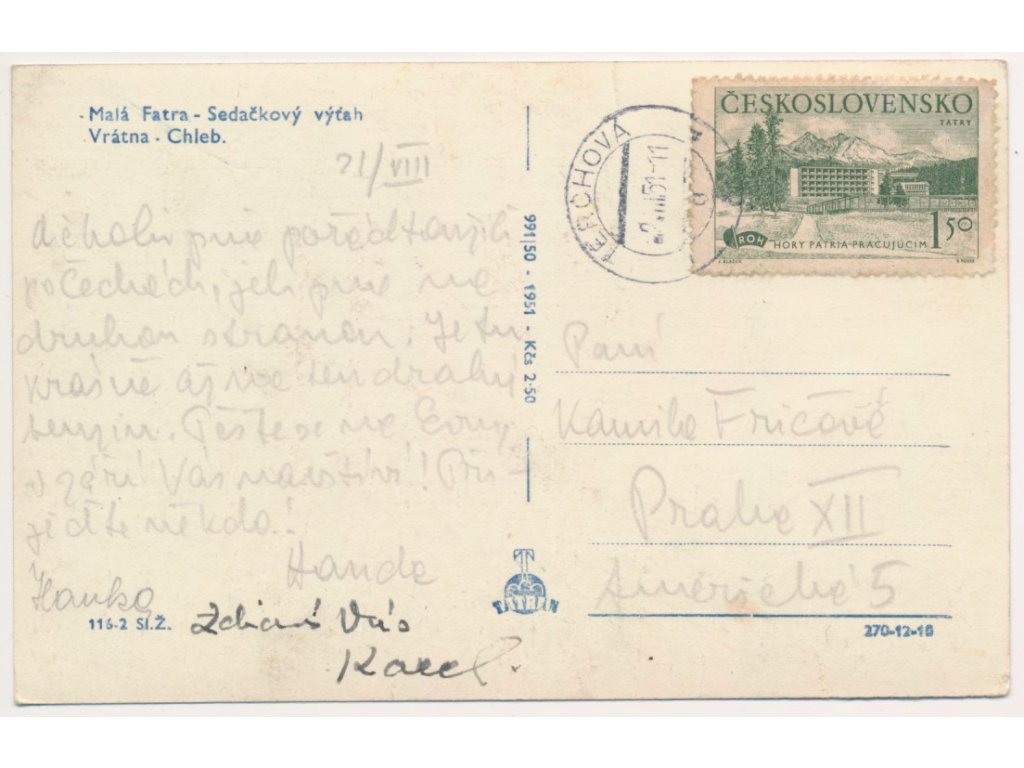 Malá Fatra - Sedačkový výťah
Vrátna - Chleb.
21/VIII
pořád
po Čechách, jeli jsme na
druhou stranou. Je tu
krásně až na ten drahý
benzin. Těšte se na
v září Vás navštíví! Při-
jeďte někdo!
Handa
Hanka
Zdraví Vás
Karel.
116-2 Sl.Ž.
991/50 - 1951 - Kčs 2·50
TATRAN
TERCHOVÁ
ČESKOSLOVENSKO
TATRY
ROH
HORY PATRIA PRACUJÚCIM
1 50
Paní
Kamila Fričová
Praha XII
Americká 5
270-12-18